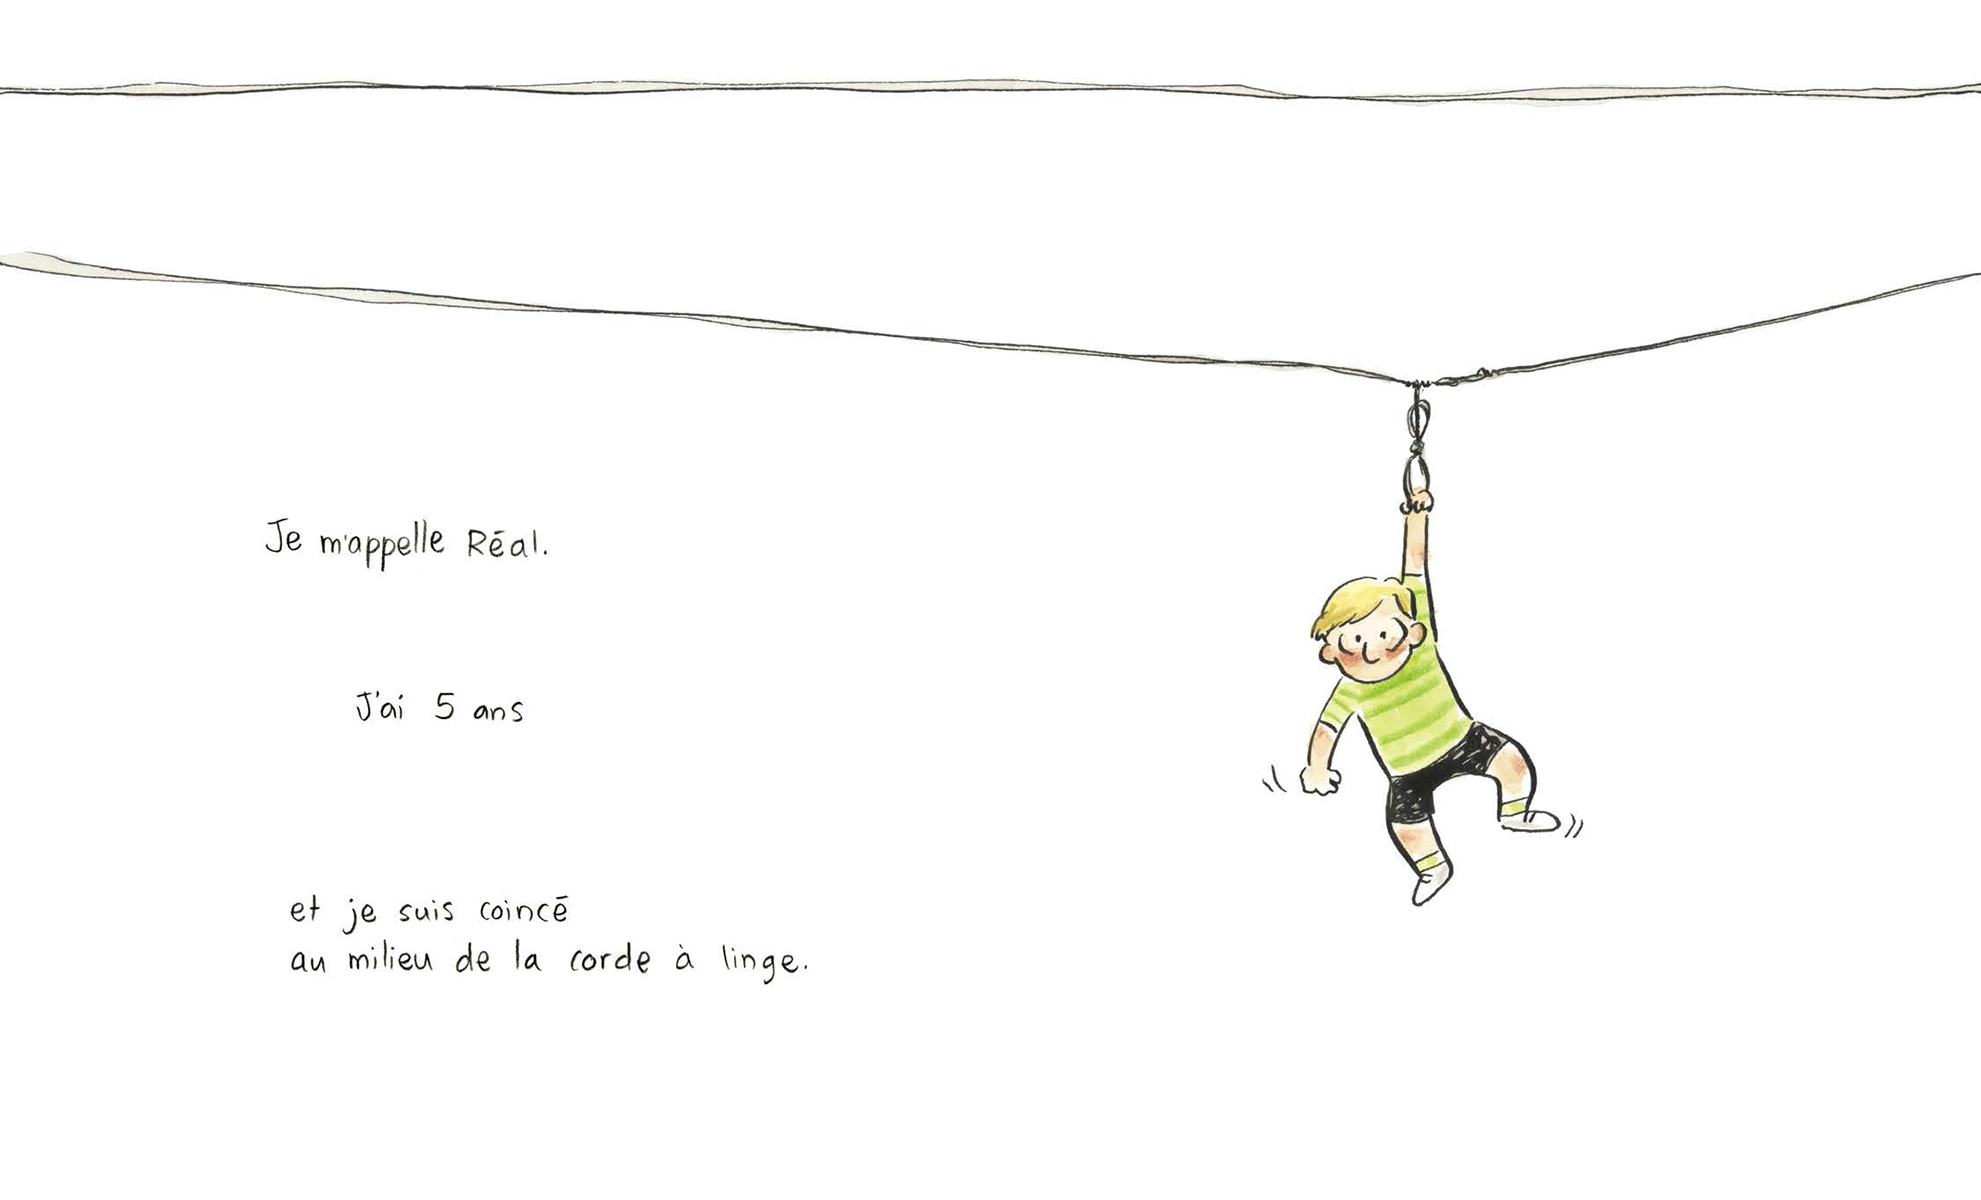 Je m'appelle Réal.
J'ai 5 ans
et je suis coincé
au milieu de la corde à linge.